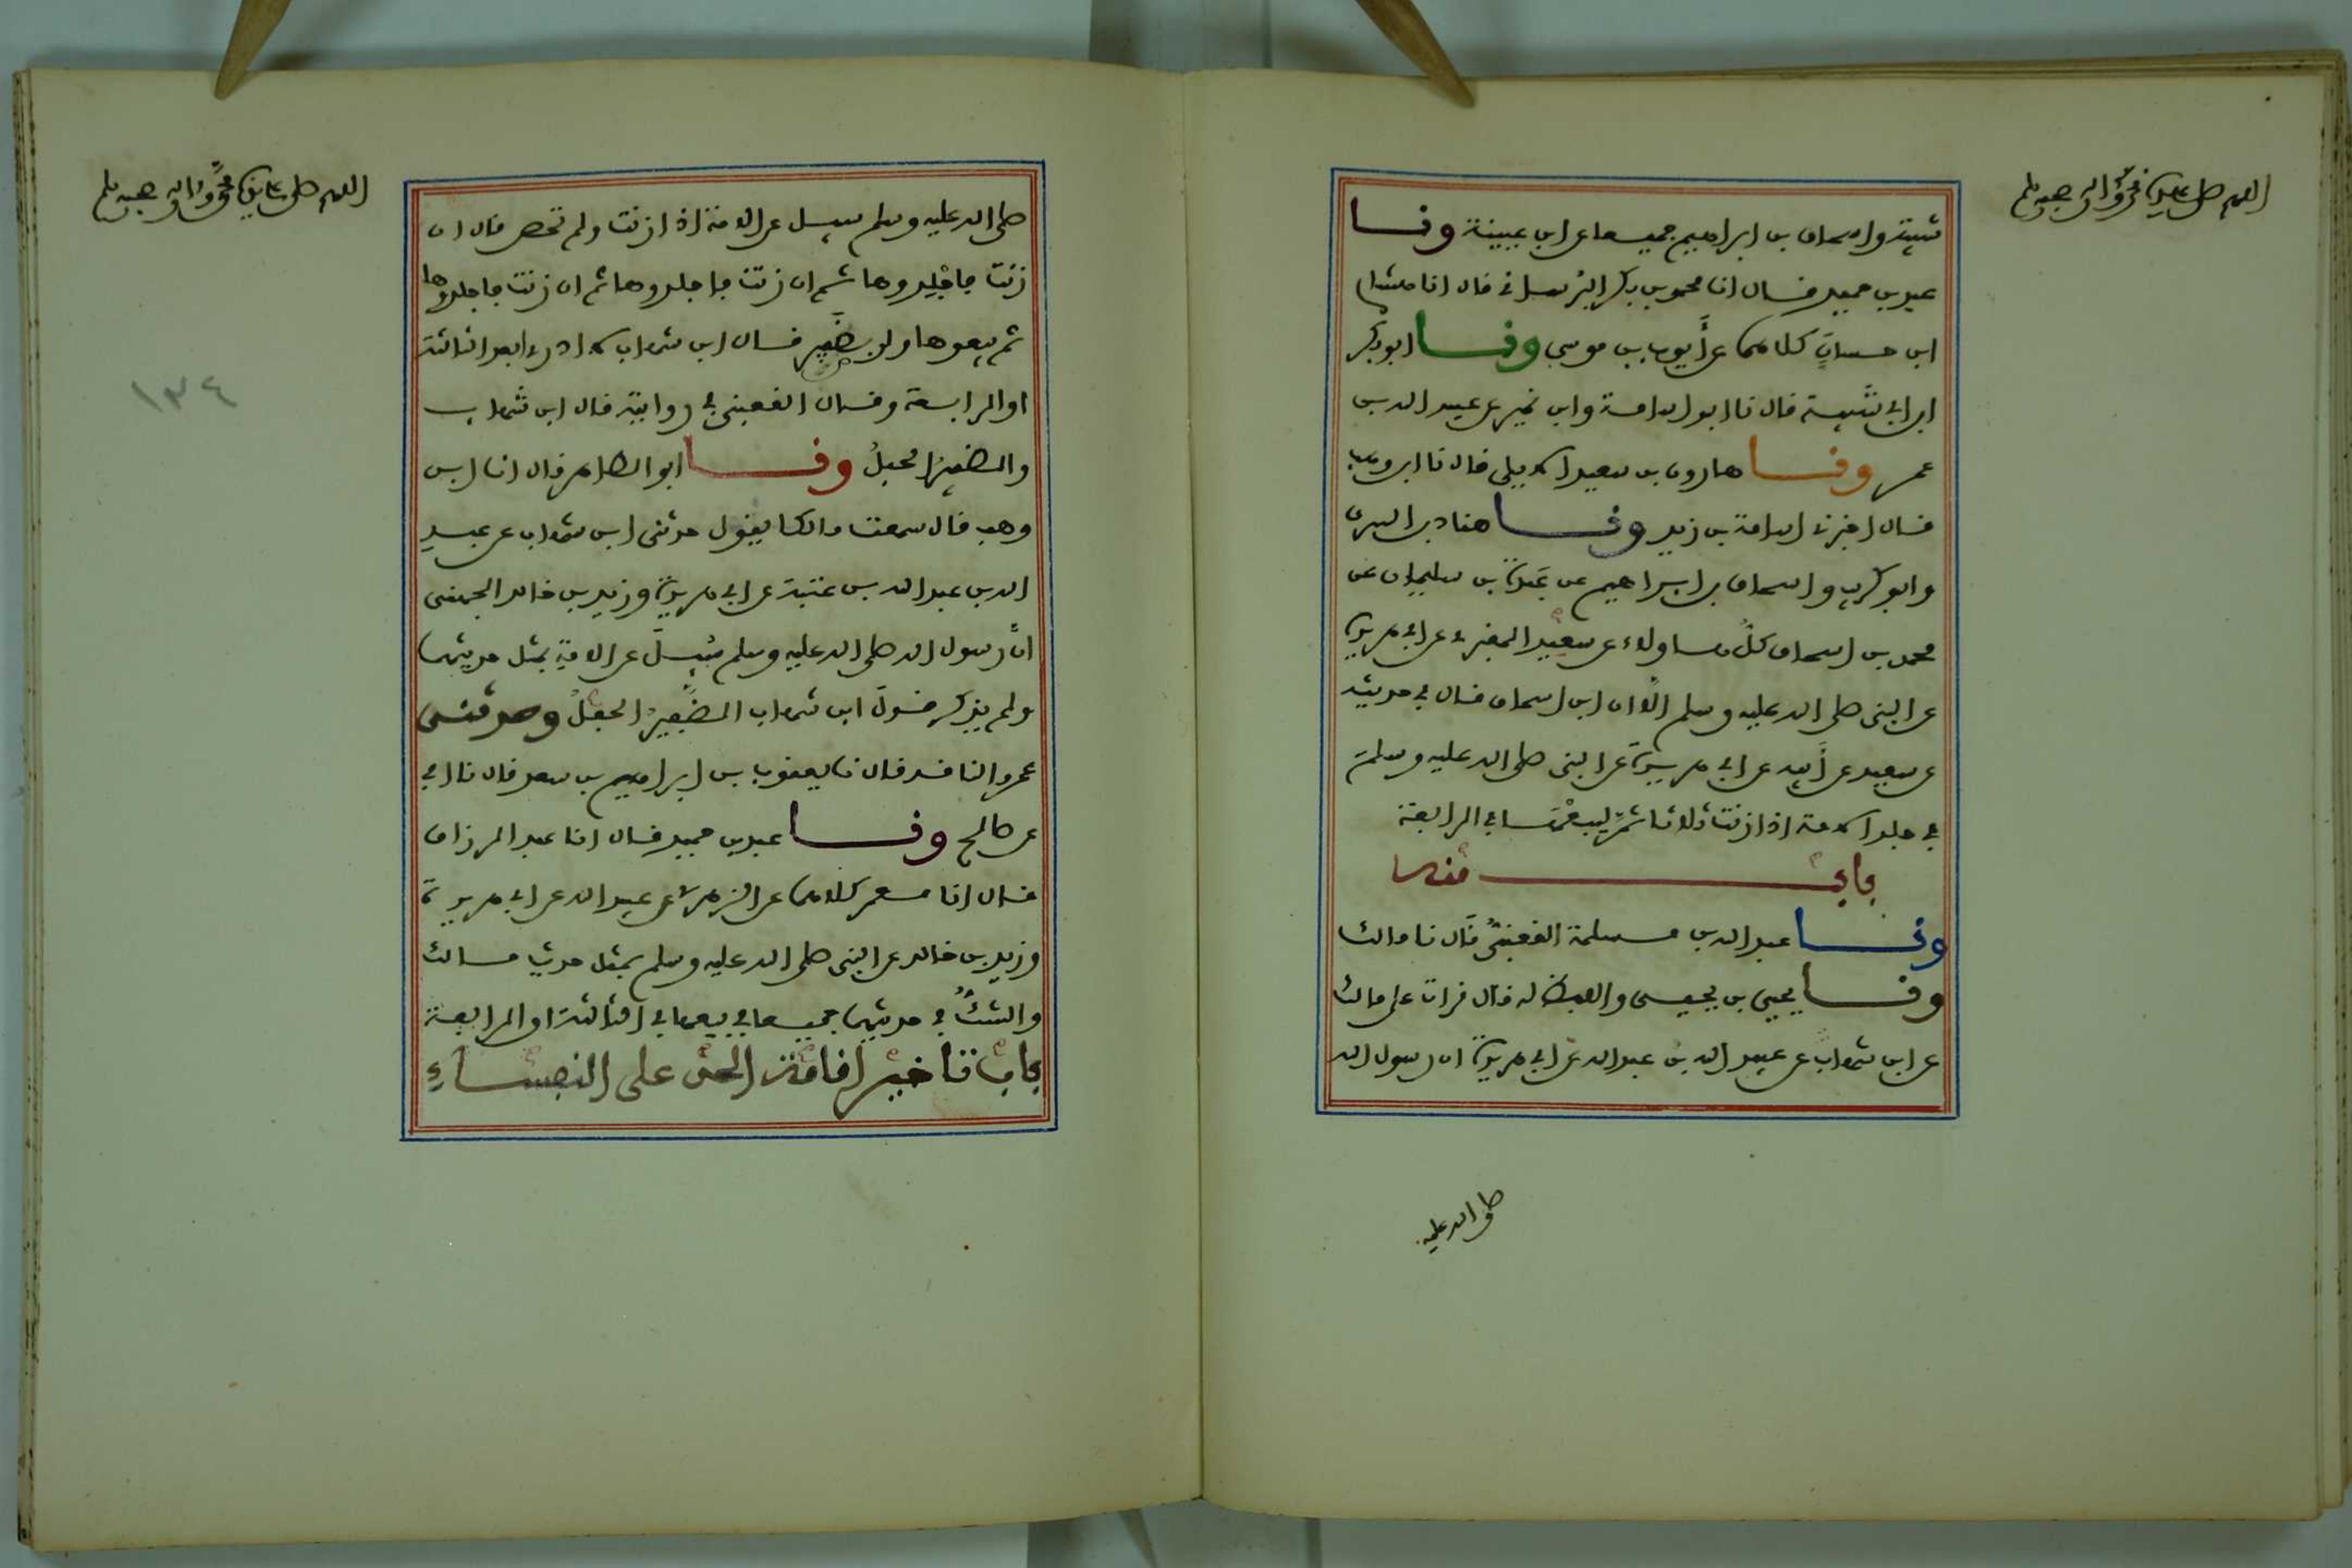 اللهم صل على سيدنا محمد وآله وصحبه وسلم
شيبة وإسحاق بن ابراهيم جميعا عن ابن عيينة ونا
عبد بن حميد قال انا محمد بن بكر البرساني قال انا هشام
ابن حسان كلاهما عن أيوب بن موسى ونا ابو بكر
ابن ابي شيبة قال نا ابو اسامة وابن نمير عن عبيد الله بن
عمر ونا هارون بن سعيد الايلي قال نا ابن وهب
قال اخبرني اسامة بن زيد ونا هناد بن السري
وابو كريب واسحاق بن ابراهيم عن عبدة بن سليمان عن
محمد بن اسحاق كل هاولاء عن سعيد المقبري عن ابي هريرة
عن النبي صلى الله عليه وسلم الا ان ابن اسحاق قال في حديثه
عن سعيد عن أبيه عن ابي هريرة عن النبي صلى الله عليه وسلم
في جلد الامة اذا زنت ثلاثا ثم ليبعها في الرابعة
باب منه
ونا عبد الله بن مسلمة القعنبي قال نا مالك
ونا يحيى بن يحيى واللفظ له قال قرات على مالك
عن ابن شهاب عن عبيد الله بن عبد الله عن ابي هريرة ان رسول الله
صلى الله عليه
اللهم صل على سيدنا محمد وآله وصحبه وسلم
صلى الله عليه وسلم سيل عن الامة اذا زنت ولم تحصن قال ان
زنت فاجلدوها ثم ان زنت فاجلدوها ثم ان زنت فاجلدوها
ثم بيعوها ولو بضفير قال ابن شهاب لا ادري ابعد الثالثة
١٣٤
او الرابعة وقال القعنبي في روايته قال ابن شهاب
والضفير الحبل ونا ابو الطاهر قال انا ابن
وهب قال سمعت مالكا يقول حدثني ابن شهاب عن عبيد
الله بن عبد الله بن عتبة عن ابي هريرة وزيد بن خالد الجهني
ان رسول الله صلى الله عليه وسلم سيل عن الامة بمثل حديثهما
ولم يذكر قول ابن شهاب الضفير الحبل وحدثني
عمرو الناقد قال نا يعقوب بن ابراهيم بن سعد قال نا ابي
عن صالح ونا عبد بن حميد قال انا عبد الرزاق
قال انا معمر كلاهما عن الزهري عن عبيد الله عن ابي هريرة
وزيد بن خالد عن النبي صلى الله عليه وسلم بمثل حديث مالك
والشك في حديثهما جميعا في بيعها في الثالثة او الرابعة
باب تاخير اقامة الحد على النفساء